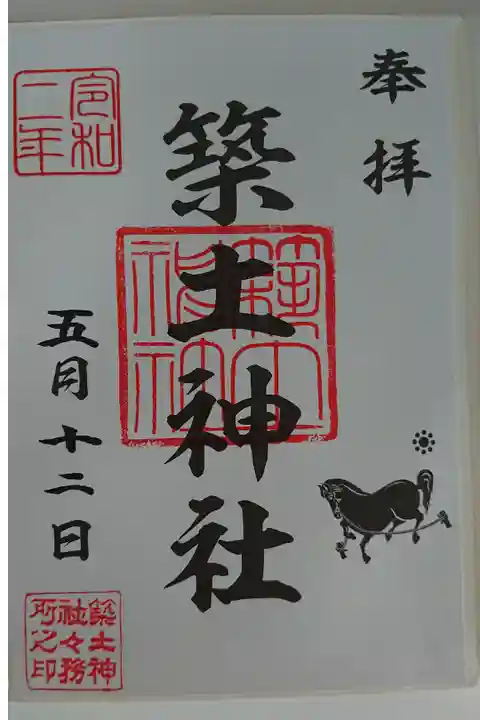 奉拝
築土神社
築土神社
令和二年
五月十二日
築土神社々務所之印